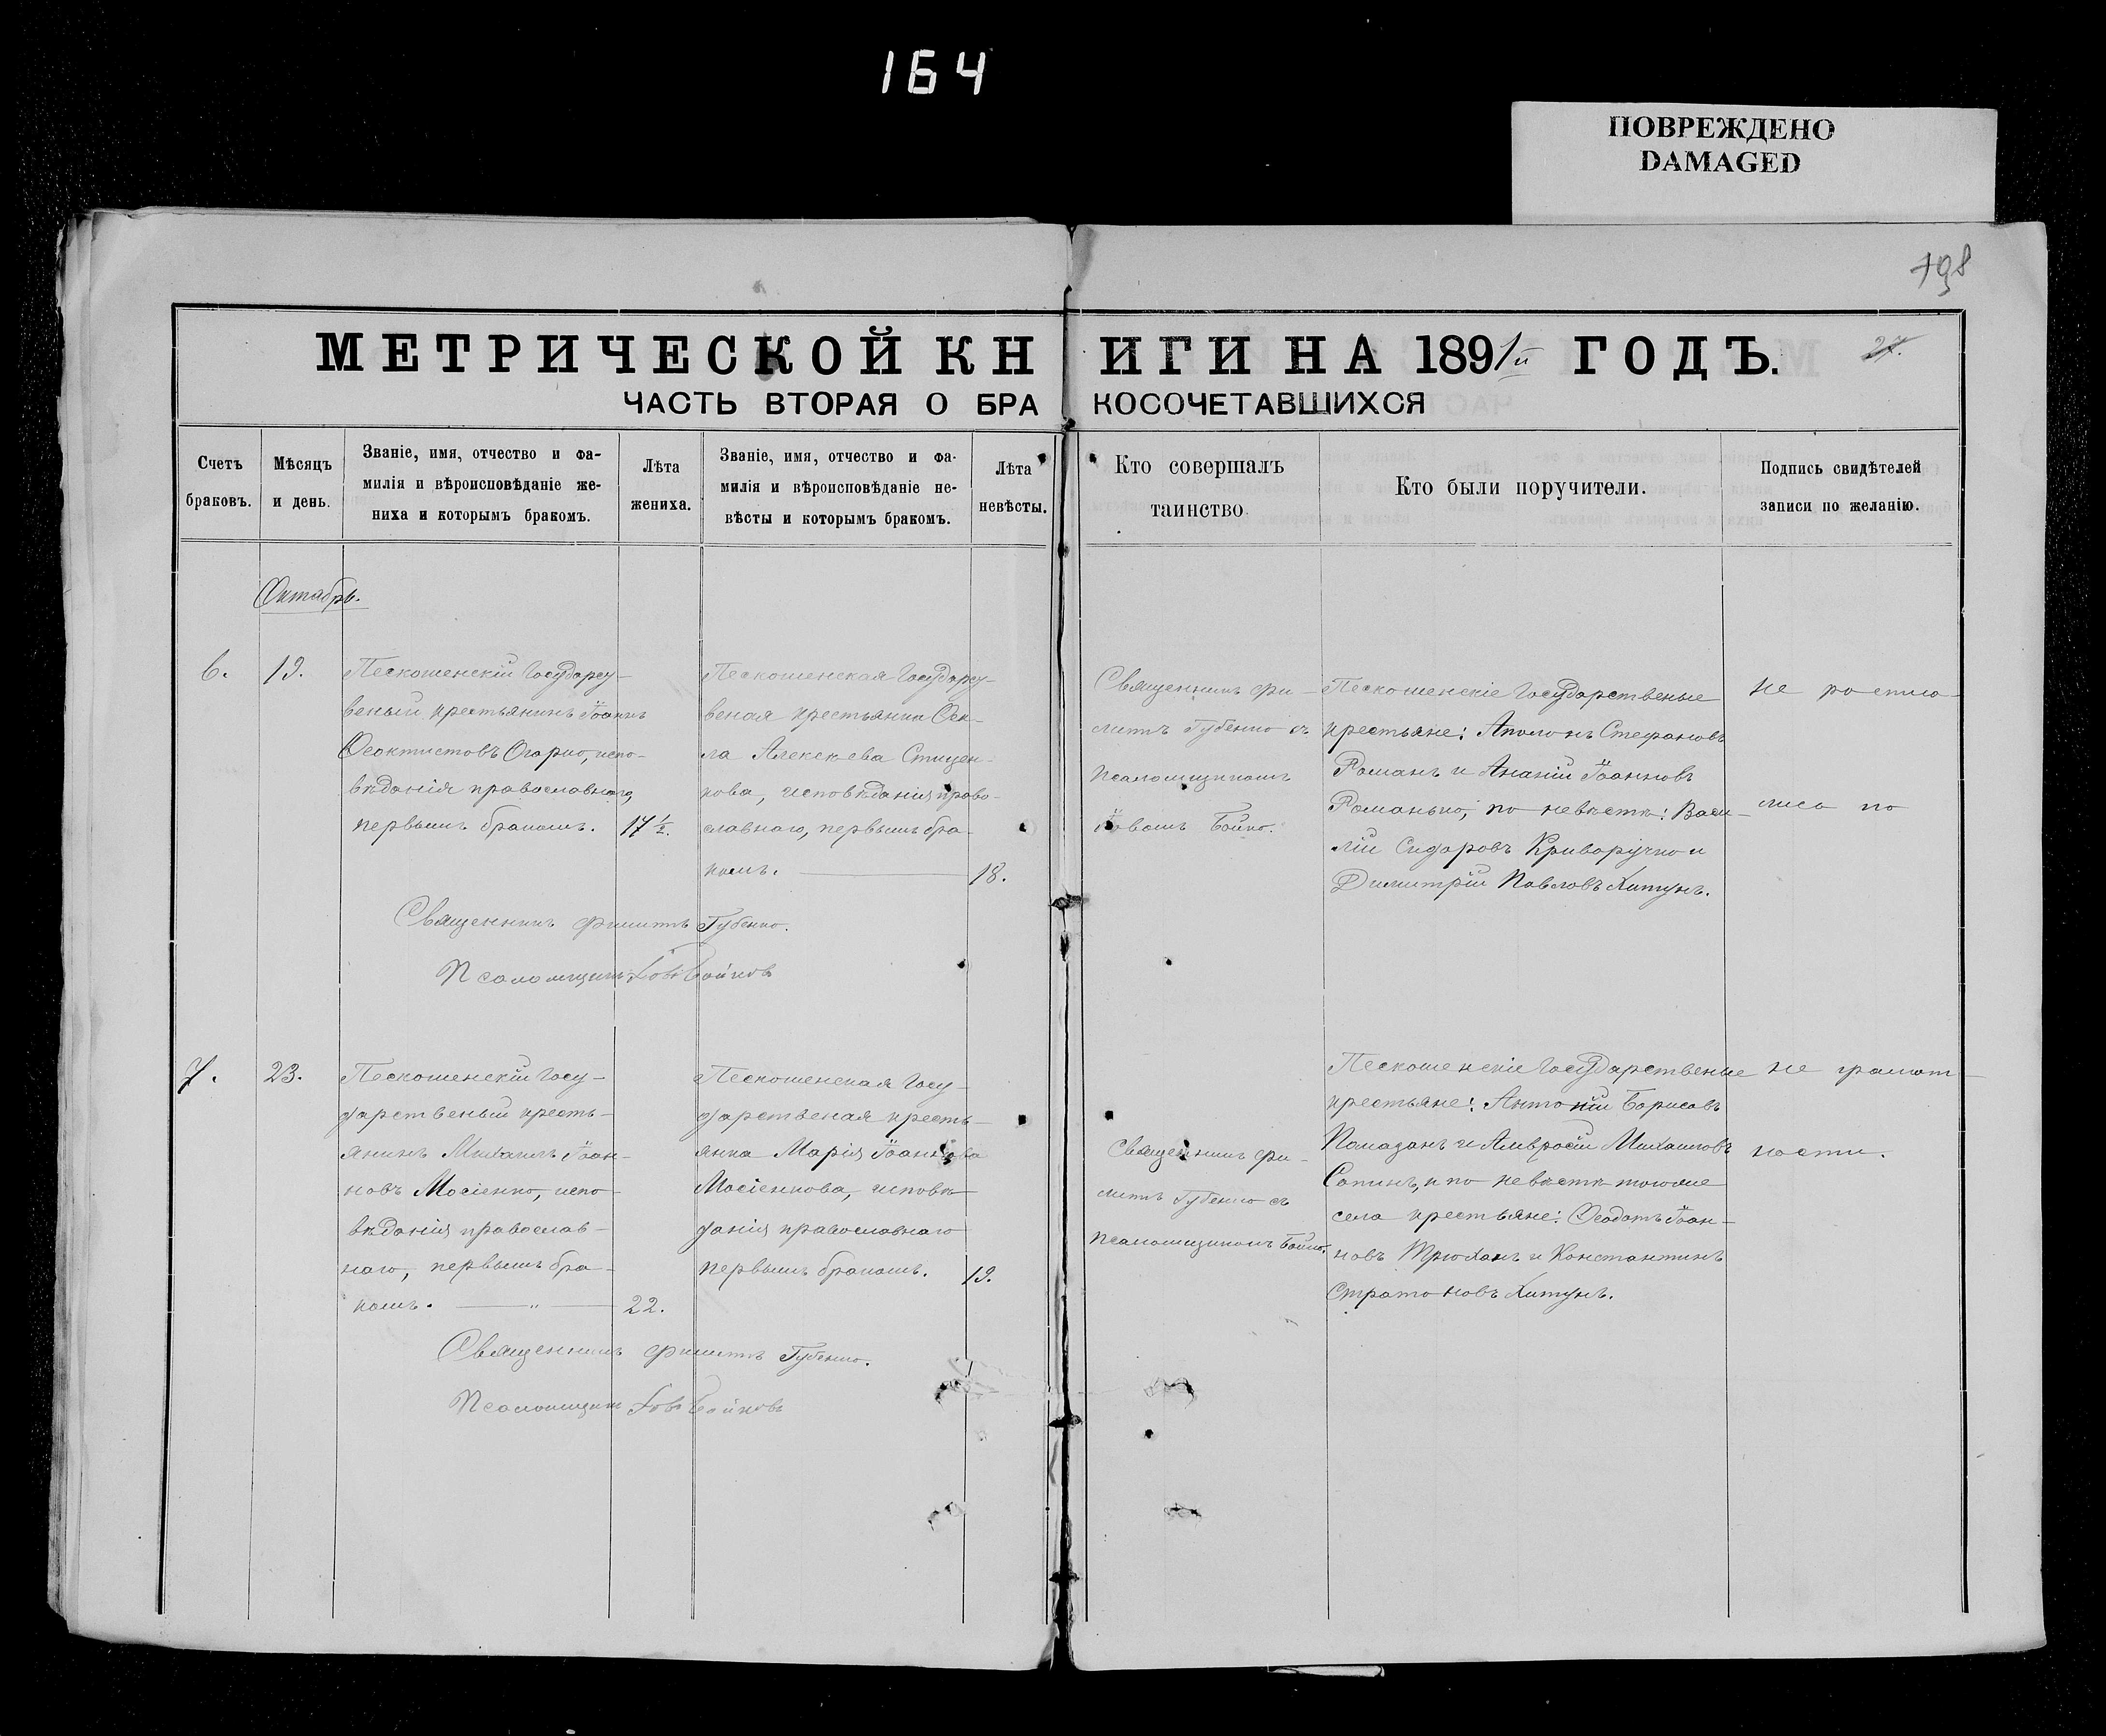 164
ПОВРЕЖДЕНО
DAMAGED
198
МЕТРИЧЕСКОЙ КНИГИ НА 1891й ГОДЪ.
27.
ЧАСТЬ ВТОРАЯ О БРАКОСОЧЕТАВШИХСЯ
Счетъ
браковъ.
Мѣсяцъ
и день.
Званіе, имя, отчество и фа-
милія и вѣроисповѣданіе же-
ниха и которымъ бракомъ.
Лѣта
жениха.
Званіе, имя, отчество и фа-
милія и вѣроисповѣданіе не-
вѣсты и которымъ бракомъ.
Лѣта
невѣсты.
Кто совершалъ
таинство.
Кто были поручители.
Подпись свидѣтелей
записи по желанію.
Октябрь.
6.
19.
Пескошенскій Государст-
веный крестьянинъ Іоаннъ
Ѳеоктистовъ Огарко, испо-
вѣданія православнаго,
первымъ бракомъ.
17 1/2.
Пескошенская Государст-
веная крестьянка Ѳек-
ла Алексѣева Стицен-
кова, исповѣданія право-
славнаго, первымъ бра-
комъ.
18.
Священникъ Фи-
липъ Губенко съ
псаломщикомъ
Іовомъ Бойко.
Пескошенскіе Государственые
крестьяне: Аполонъ Стефановъ
Романъ и Ананій Іоанновъ
Романько, по невѣстѣ: Васи-
лій Сидоровъ Криворучко и
Димитрій Павловъ Хитунъ.
не роспис-
лись по
Священникъ Филиппъ Губенко.
Псаломщикъ Іовъ Бойковъ
7.
23.
Пескошенскій Госу-
дарственый кресть-
янинъ Михаилъ Іоан-
новъ Мосіенко, испо-
вѣданія православ-
наго, первымъ бра-
комъ. — „ —
22.
Пескошенская Госу-
дарственая кресть-
янка Марія Іоаннова
Мосіенкова, исповѣ-
данія православнаго
первымъ бракомъ.
19.
Священникъ Фи-
липъ Губенко съ
псаломщикомъ Бойко.
Пескошенскіе Государственые
крестьяне: Антоній Борисовъ
Помазанъ и Амвросій Михаиловъ
Сапинъ, и по невѣстѣ тогоже
села крестьяне: Ѳеодотъ Іоан-
новъ Трюханъ и Константинъ
Стратоновъ Хитунъ.
не грамот-
ности.
Священникъ Филиппъ Губенко.
Псаломщикъ Іовъ Бойковъ